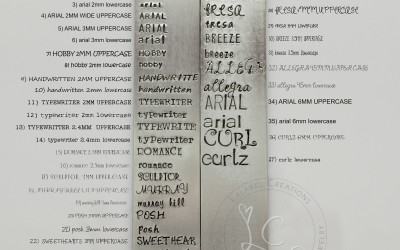 3) arial 2mm lowercase
4) ARIAL 2MM WIDE UPPERCASE
5) ARIAL 3MM UPPERCASE
6) arial 3mm lowercase
7) HOBBY 2MM UPPERCASE
8) hobby 2mm lowercase
9) HANDWRITTEN 2MM UPPERCASE
10) handwritten 2mm lowercase
11) TYPEWRITER 2MM UPPERCASE
12) typewriter 2mm lowercase
13) TYPEWRITER 2.4MM UPPERCASE
14) typewriter 2.4mm lowercase
15) ROMANCE 2.5MM UPPERCASE
16) romance 2.5mm lowercase
17) SCULPTOR 3MM UPPERCASE
20) POSH 3MM UPPERCASE
21) posh 3mm lowercase
22) SWEETHEARTS 3MM UPPERCASE
arial
ARIAL
ARIAL
arial
HOBBY
hobby
HANDWRITTE
handwritten
TYPEWRITER
typewriter
TYPEWRITER
typewriter
ROMANCE
romance
SCULPTOR
MURRAY
murray hill
POSH
posh
SWEETHEAR
FRESA
fresa
BREEZE
breeze
ALLEG
allegra
ARIAL
arial
CURL
curlz
UPPERCASE
lowercase
BREEZE UPPERCASE
lowercase
32) ALLEGRA UPPERCASE
33) allegra 6mm lowercase
34) ARIAL 6MM UPPERCASE
35) arial 6mm lowercase
36) CURLZ 6MM UPPERCASE
37) curlz lowercase
CREATIONS